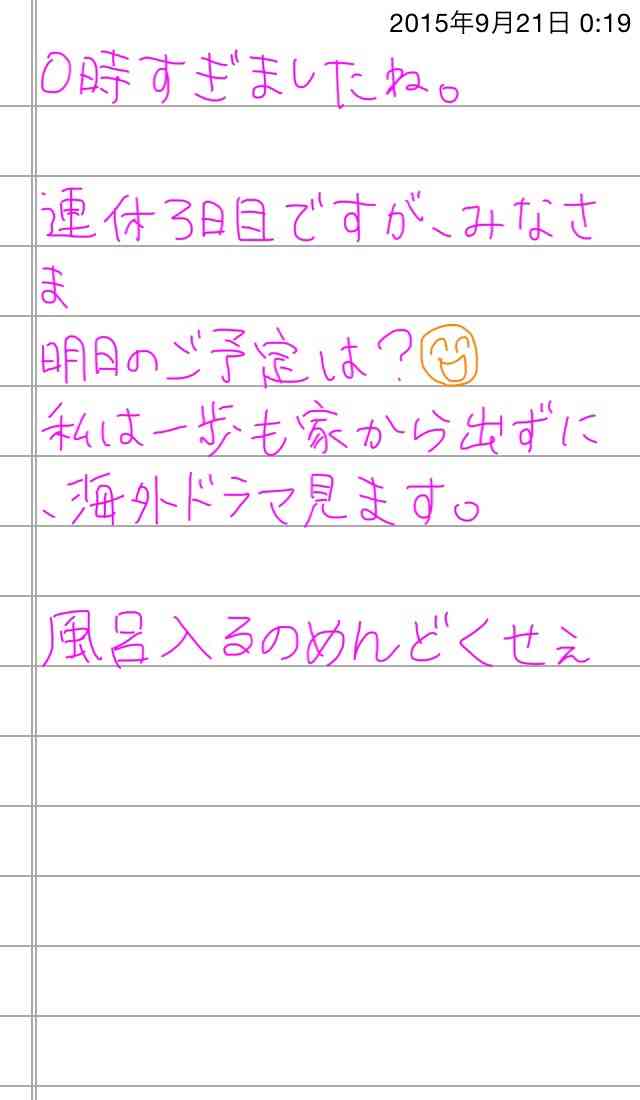 2015年9月21日 0:19
0時すぎましたね。
連休3日目ですが、みなさ
ま
明日のご予定は?
私は一歩も家から出ずに
、海外ドラマ見ます。
風呂入るのめんどくせぇ